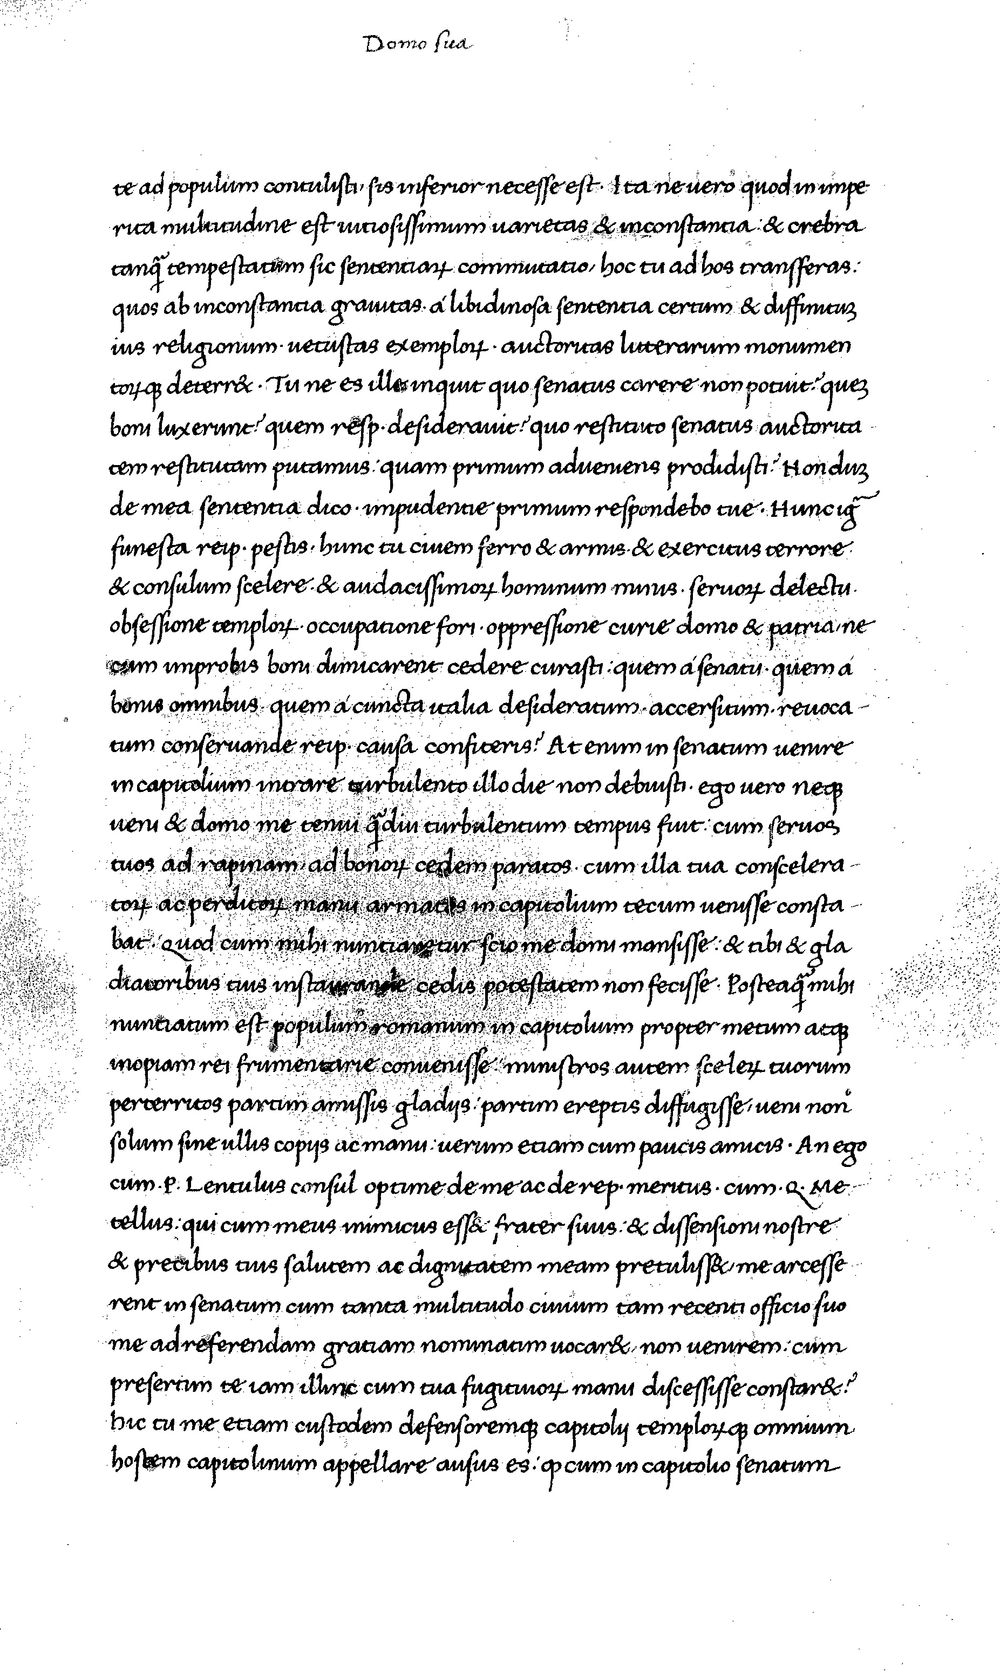 Domo sua
te ad populum contulisti, sis inferior necesse est. Ita ne uero quod in impe
rita multitudine est uitiosissimum uarietas & inconstantia: & crebra
tanq̃ tempestatum sic sententiaꝝ commutatio, hoc tu ad hos transfferas:
quos ab inconstantia grauitas. á libidinosa sententia certum & diffinituꝫ
ius religionum. uetustas exemploꝝ. auctoritas litterarum monumen
toꝝqꝫ deterr&. Tu ne es ille inquit quo senatus carere non potuit? queꝫ
boni luxerunt? quem resp. desiderauit? quo restituto senatus auctorita-
tem restitutam putamus: quam primum adueniens prodidisti? Nonduꝫ
de mea sententia dico. impudentie primum respondebo tue. Hunc ig̃
funesta reip. pestis, hunc tu ciuem ferro & armis. & exercitus terrore.
& consulum scelere. & audacissimoꝝ hominum minis. seruoꝝ delectu.
obsessione temploꝝ. occupatione fori. oppressione curie domo & patria, ne
cum improbis boni dimicarent cedere curasti: quem á senatu. quem á
bonis omnibus. quem á cuncta italia desideratum. accersitum. reuoca-
tum conseruande reip. causa confiteris? At enim in senatum uenire
in capitolium intrare turbulento illo die non debuisti. ego uero neqꝫ
ueni & domo me tenui q̃diu turbulentum tempus fuit: cum seruos
tuos ad rapinam, ad bonoꝝ cedem paratos. cum illa tua conscelera-
toꝝ ac perditoꝝ manu armatos in capitolium tecum uenisse consta-
bat. Quod cum mihi nuntiaretur scio me domi mansisse: & tibi & gla
diatoribus tuis instaurande cedis potestatem non fecisse. Posteaq̃ mihi
nuntiatum est populum romanum in capitolium propter metum atqꝫ
inopiam rei frumentarie conuenisse: ministros autem sceleꝝ tuorum
perterritos partim amissis gladijs: partim ereptis diffugisse, ueni non
solum sine ullis copijs ac manu: uerum etiam cum paucis amicis. An ego
cum .P. Lentulus consul optime de me ac de rep. meritus. cum .Q. Me-
tellus: qui cum meus inimicus ess& frater tuus: & dissensioni nostre
& precibus tuis salutem ac dignitatem meam pretuliss&, me arcesse
rent in senatum cum tanta multitudo ciuium tam recenti officio suo
me ad referendam gratiam nominatim uocar&, non uenirem: cum
presertim te iam illinc cum tua fugitiuoꝝ manu discessisse constar&?
Hic tu me etiam custodem defensoremqꝫ capitolij temploꝝqꝫ omnium
hostem capitolinum appellare ausus es: ꝙ cum in capitolio senatum